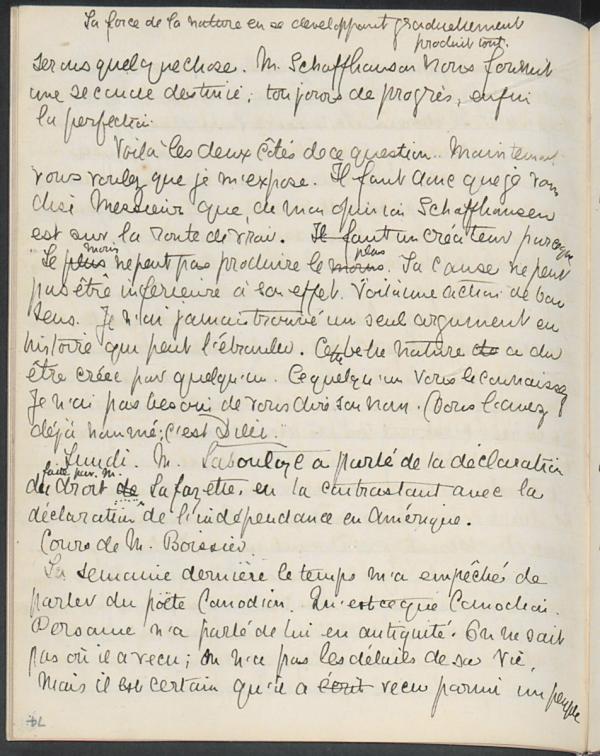 La force de la nature en se developpant graduellement
produit tout.
serons quelque chose. M. Schaffhausen nous fournit
une seconde destinie; toujours de progrès, enfin
la perfection.
Voilà les deux côtés de ce question. Maintenant
vous voulez que je m'expose. Il faut donc que je vous
dise Messieurs que, de mon opinion Schaffhausen
est sur la route de vrai. Il faut un créateur parceque
le plus moins ne peut pas produire le moins plus. La cause ne peut
pas être inferieure à son effet. Voilà une action de bon
sens. Je n'ai jamais trouvé un seul argument en
histoire qui peut l'ébranler. Cette belle nature a du
être créée par quelqu'un. Ce quelqu'un vous le connaissez
Je n'ai pas besoin de vous dire son nom. (Vous l'avez
déjà nommé; c'est Dieu.
Lundi. M. Laboulaye a parlé de la déclaration
du droit de faite par M. Lafayette, en la contrastant avec la
déclaration de l'indépendance en Amérique.
Cours de M. Boissier
La semaine dernière le temps m'a empêché de
parler du poëte Canodien. Qu'est ce que Canodien.
Personne n'a parlé de lui en antiquité. On ne sait
pas où il a vecu; on n'a pas les détails de sa vie,
Mais il est certain qu'il a écrit vecu parmi un peuple